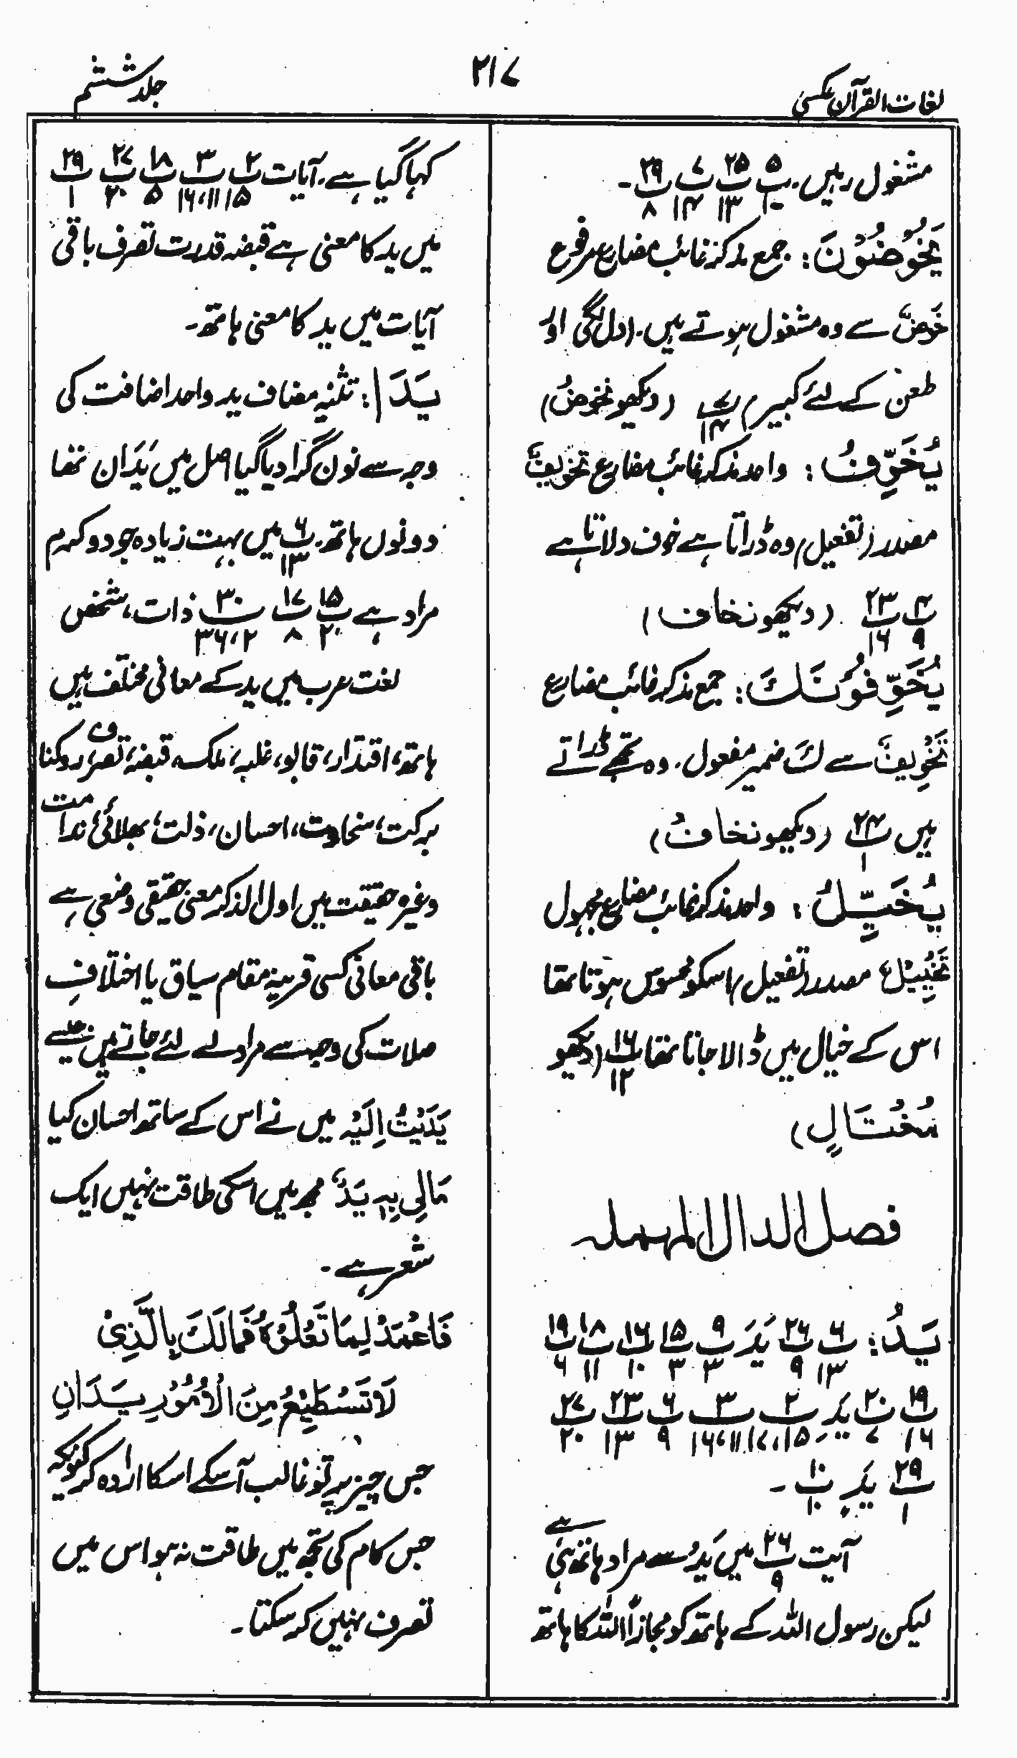 لغات القرآن عکسی
۲۱۷
جلد ششم
مشغول رہیں۔ پ۵/۱۰ پ۲۵/۱۳ پ۷/۱۴ پ۲۹/۸۔
یَخُوْضُوْنَ: جمع مذکر غائب مضارع مرفوع
خَوْضٌ سے وہ مشغول ہوتے ہیں۔ (دل لگی اور
طعن کے لئے کبیر) پ۷/۱۴ (دیکھو نَخُوْضُ)
یُخَوِّفُ: واحد مذکر غائب مضارع تَخْوِیْفٌ
مصدر (تفعیل) وہ ڈراتا ہے خوف دلاتا ہے
پ۴/۹ پ۲۳/۱۶ (دیکھو نخاف)
یُخَوِّفُوْنَكَ: جمع مذکر غائب مضارع
تَخْوِیْفٌ سے كَ ضمیر مفعول۔ وہ تجھے ڈراتے
ہیں پ۲۴/۱ (دیکھو نخافُ)
یُخَیَّلُ: واحد مذکر غائب مضارع مجہول
تَخْیِیْلٌ مصدر (تفعیل) اسکو محسوس ہوتا تھا
اس کے خیال میں ڈالا جاتا تھا پ۱۶/۱۲ (دیکھو
مُخْتَالٍ)
فصل الدال المہملہ
یَدُ: پ۶/۱۳ پ۲۶/۹ یَدَ پ۹/۳ پ۱۵/۳ پ۱۶/۱۰ پ۱۸/۱۱ پ۱۹/۶
پ۱۹/۱۶ پ۲۰/۷ یَدِ پ۲/۱۵ پ۳/۱۱،۱۶،۱۷ پ۶/۹ پ۲۳/۱۳ پ۲۷/۲۰
پ۲۹/۱ یَدٍ پ۱۰/۱۰۔
آیت پ۲۶/۹ میں یَدُ سے مراد ہاتھ ہی ہے
لیکن رسول اللہ کے ہاتھ کو مجازاً اللہ کا ہاتھ
کہا گیا ہے۔ آیات پ۲/۱۵ پ۳/۱۱،۱۶ پ۱۸/۵ پ۲۷/۲۰ پ۲۹/۱
میں ید کا معنی ہے قبضہ قدرت تصرف باقی
آیات میں ید کا معنی ہاتھ۔
یَدَا: تثنیہ مضاف ید واحد اضافت کی
وجہ سے نون گرا دیا گیا اصل میں یَدَان تھا
دونوں ہاتھ۔ پ۶/۱۳ میں بہت زیادہ جود و کرم
مراد ہے پ۱۵/۲۰ پ۱۷/۸ پ۳۰/۲،۳۶ ذات، شخص
لغت عرب میں ید کے معانی مختلف ہیں
ہاتھ، اقتدار، قابو، غلبہ، ملک، قبضہ، تصرف، روکنا
برکت، سخاوت، احسان، ذلت، بھلائی، ندامت
وغیرہ حقیقت میں اول الذکر معنی حقیقی وضعی ہے
باقی معانی کسی قرینہ مقام سیاق یا اختلافِ
صلات کی وجہ سے مراد لے لئے جاتے ہیں جیسے
یَدَیْتُ اِلَیْہِ میں نے اس کے ساتھ احسان کیا
مَالِی بِہٖ یَدٌ مجھ میں اسکی طاقت نہیں ایک
شعر ہے۔
فَاعْمَدْ لِمَا تَعْلُوْ فَمَالَكَ بِالَّذِیْ
لَا تَسْتَطِیْعُ مِنَ الْاُمُوْرِ یَدَانِ
جس چیز پر تو غالب آسکے اسکا ارادہ کر کیونکہ
جس کام کی تجھ میں طاقت نہ ہو اس میں
تصرف نہیں کر سکتا۔